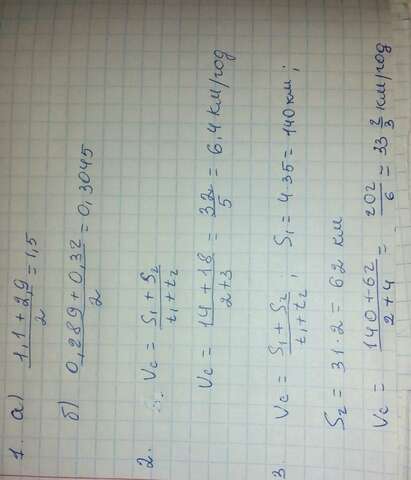 1. а) (1,1 + 2,9)/2 = 1,5
б) (0,289 + 0,32)/2 = 0,3045
2. Vc = (S₁ + S₂)/(t₁ + t₂)
Vc = (14 + 18)/(2 + 3) = 32/5 = 6,4 км/год
3. Vc = (S₁ + S₂)/(t₁ + t₂); S₁ = 4·35 = 140 км;
S₂ = 31·2 = 62 км
Vc = (140 + 62)/(2 + 4) = 202/6 = 33 2/3 км/год